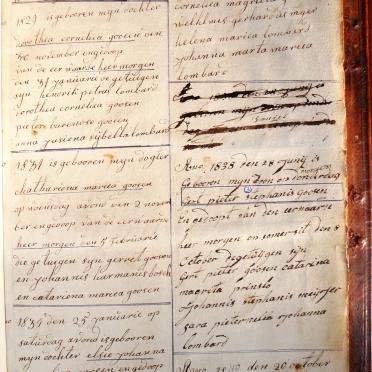 1829 is geboren myn dochter
dorothea cornelia goosen den
30 november en gedoop
van de eerwaarde heer morgen
den 31 januarie de getuigen
syn hendrik petrus lombard
dorothea cornelia goosen
pieter barendse goosen
anna susiena sybella lombard
1831 is geboren myn dogter
chathariena marea goosen
op woensdag avond den 2 novem
ber en gedoop van de eerwaarde
heer morgen den 5 februarie
die getuigen syn gerret goosen
en johannis harmanis bosch
en catariena marea goosen
1834 den 25 januarie op
saturdag avond is geboren
myn dochter elsie johanna
goosen en gedoop
cornelia magrieta
wilhelmus gerhardus myer
helena maria lombard
johanna marta marea
lombard
Ano 1838 den 28 junij is
geboren myn zoon op donderdag
morgen
gert pieter stephanis goosen
En gedoopt van den eerwaarde
heer morgen en somerset den 8
october de getuigen syn
gert pieter goosen catarina
magreta prinslo
Johannis stephanis meyser
sara pieternella johanna
lombard
Ano 1840 den 20 october